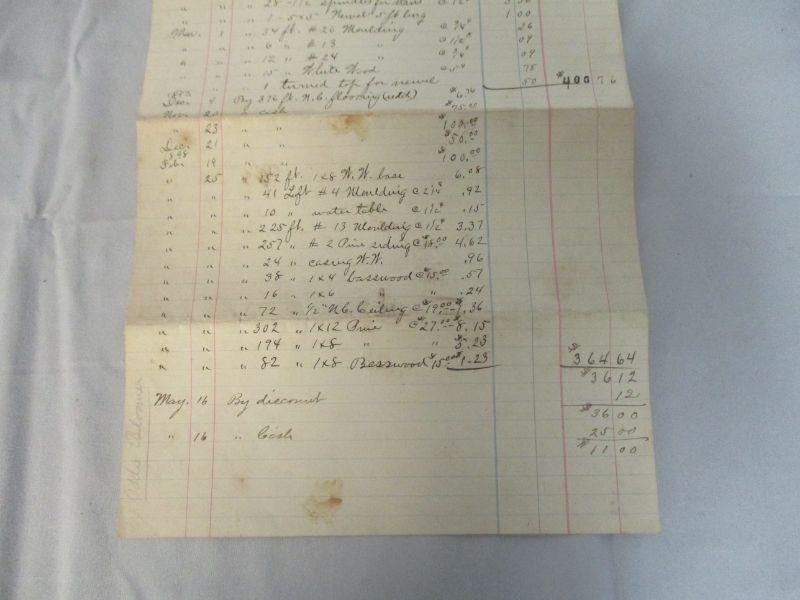 " " 28 - 1 1/2 Spindles for stairs @ 12¢ 3 36
" " 1 - 5x5 Newel 5 ft long 1 00
Mar. 1 " 34 ft # 20 Moulding @ 3/4¢ 26
" " " 6 " # 13 " @ 1 1/2¢ 09
" " " 12 " # 24 " @ 3/4¢ 09
" " " 15 " White Wood @ 5¢ 75
" " " 1 turned top for newel 50 $400 76
Dec. 4 By 376 ft. N.C. flooring $6.76
Nov. 20 " Cash $75.00
" 23 " " $100.00
Dec. 21 " " $50.00
1898
Feb. 19 " " $100.00
" 25 " 152 ft. 1x8 W.W. base 6.08
" " " 41 Lift # 4 Moulding @ 2 1/4¢ .92
" " " 10 " water table @ 1 1/2¢ .15
" " " 225 ft. # 13 Moulding @ 1 1/2¢ 3.37
" " " 257 " # 2 Pine siding @ $18.00 4.62
" " " 24 " casing W.W. .96
" " " 38 " 1x4 basswood @ $15.00 .57
" " " 16 " 1x6 " " .24
" " " 72 " 1/2" N.C. Ceiling @ $19.00 $1.36
" " " 302 " 1x12 Pine @ $27.00 $8.15
" " " 194 " 1x8 " " $5.23
" " " 82 " 1x8 Basswood $15.00 $1.23 $364 64
$36 12
May. 16 By discount 12
$36 00
" 16 " Cash 25 00
$11 00